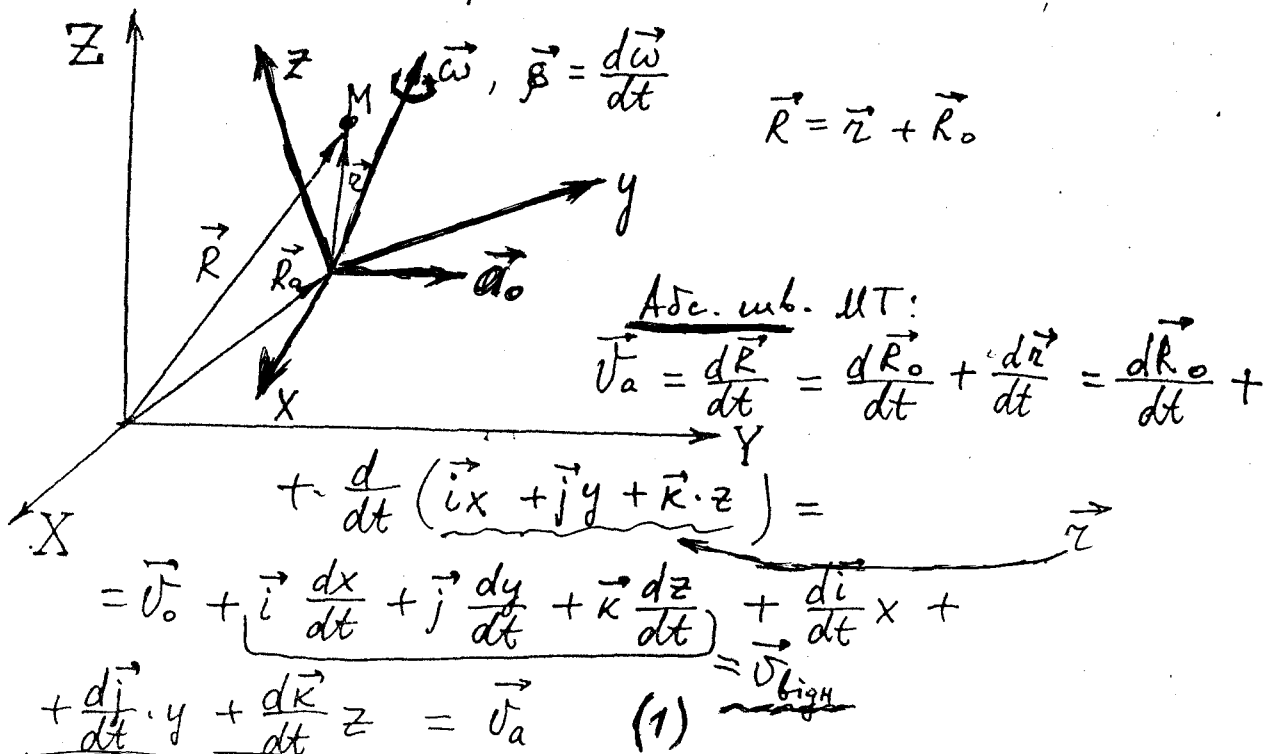 Z
z
M
ω⃗, β⃗ = dω⃗/dt
R⃗ = r⃗ + R⃗₀
r⃗
y
R⃗
R⃗₀
a⃗₀
x
Абс. шв. МТ:
v⃗ₐ = dR⃗/dt = dR⃗₀/dt + dr⃗/dt = dR⃗₀/dt +
Y
+ d/dt (i⃗x + j⃗y + k⃗·z) =
X
r⃗
= v⃗₀ + i⃗ dx/dt + j⃗ dy/dt + k⃗ dz/dt + di⃗/dt x +
= v⃗відн
+ dj⃗/dt · y + dk⃗/dt z = v⃗ₐ (1)